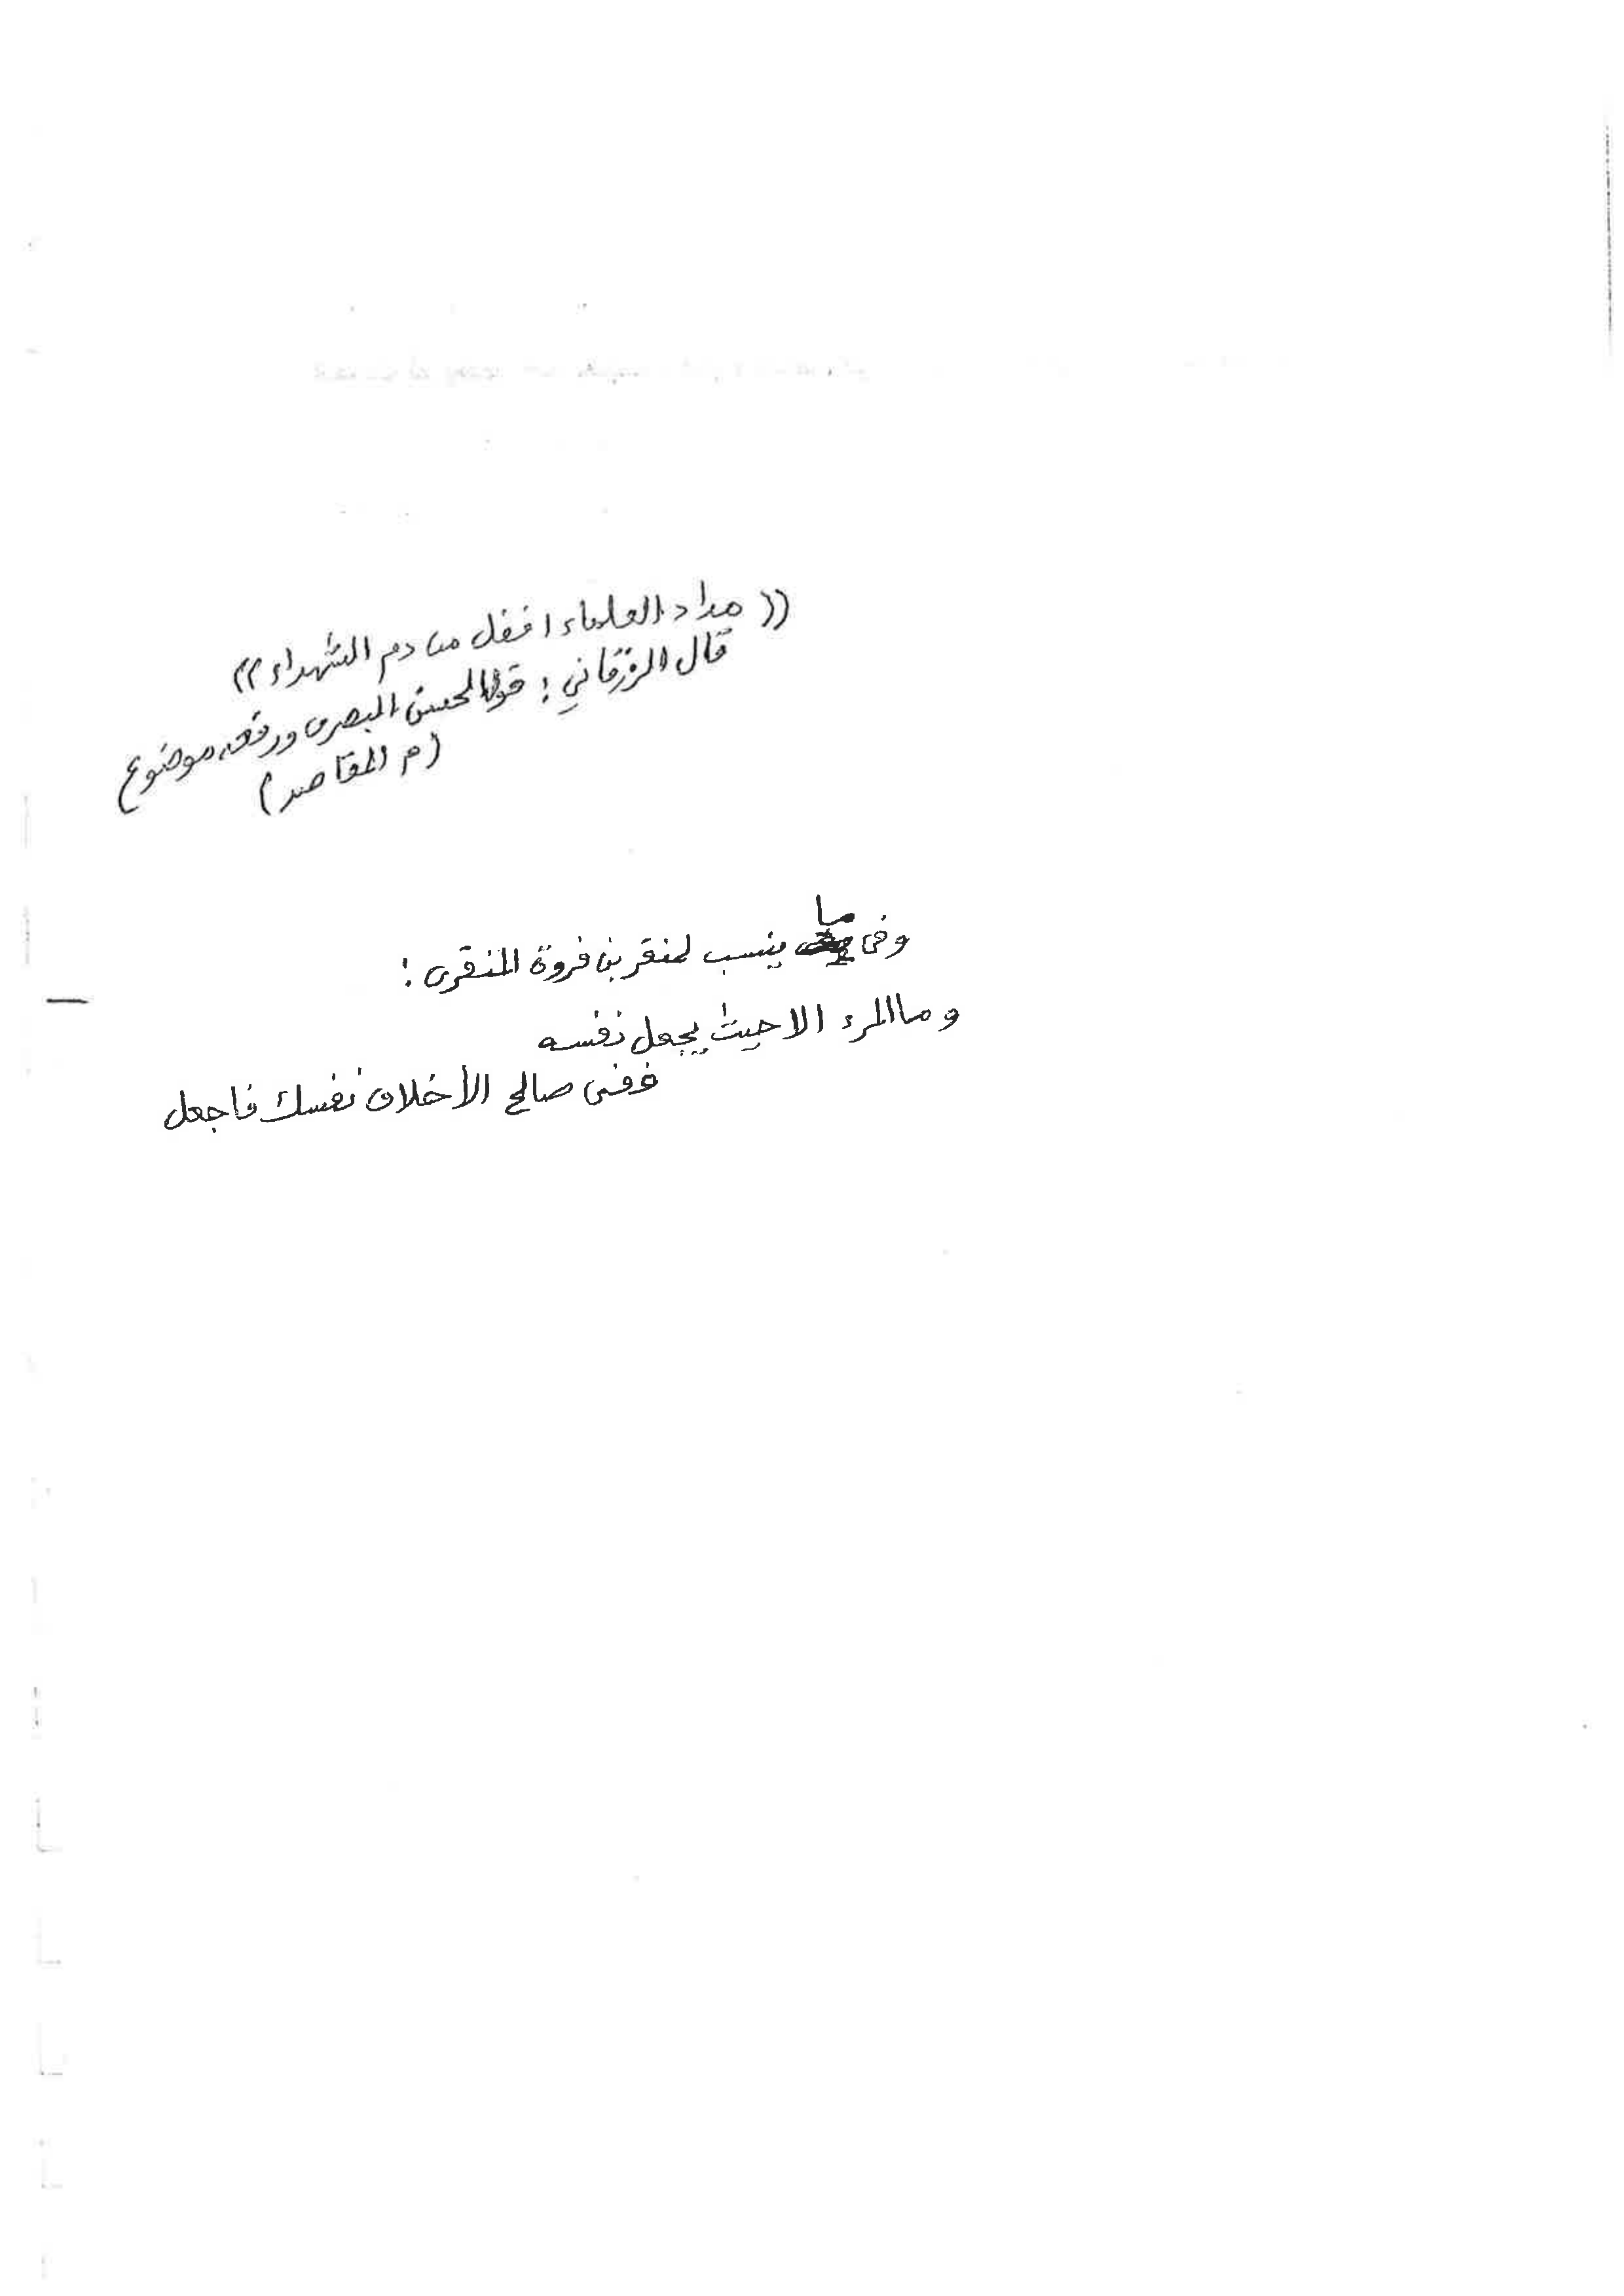 (( مداد العلماء افضل من دم الشهداء ))
قال الزرقاني : قول الحسن البصرى ورفعه موضوع
(م المقاصد)
وفى ما ينسب لمنقر بن فروة المنقرى :
وما المرء الا حيث يجعل نفسه
ففى صالح الأخلاق نفسك فاجعل